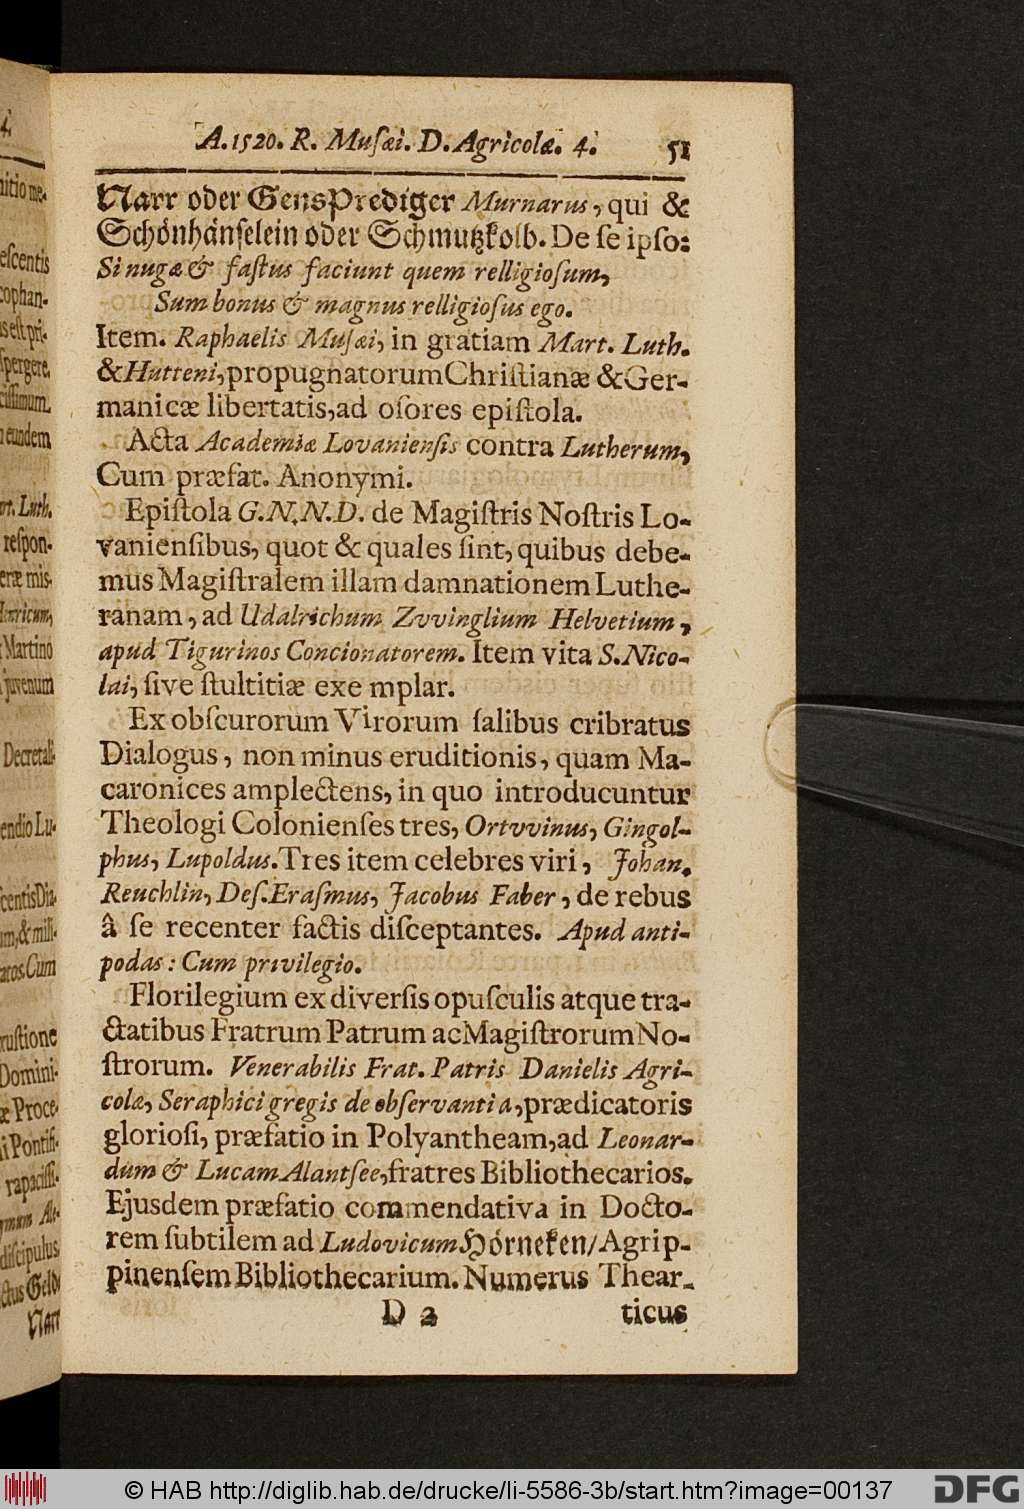 A. 1520. R. Musæi. D. Agricolæ. 4. 51
Narr oder GensPrediger Murnarus, qui &
Schönhänselein oder Schmutzkolb. De se ipso:
Si nugæ & fastus faciunt quem relligiosum,
Sum bonus & magnus relligiosus ego.
Item. Raphaelis Musæi, in gratiam Mart. Luth.
& Hutteni, propugnatorum Christianæ & Ger-
manicæ libertatis, ad osores epistola.
Acta Academiæ Lovaniensis contra Lutherum,
Cum præfat. Anonymi.
Epistola G.N.N.D. de Magistris Nostris Lo-
vaniensibus, quot & quales sint, quibus debe-
mus Magistralem illam damnationem Luthe-
ranam, ad Udalrichum Zvvinglium Helvetium,
apud Tigurinos Concionatorem. Item vita S. Nico-
lai, sive stultitiæ exe mplar.
Ex obscurorum Virorum salibus cribratus
Dialogus, non minus eruditionis, quam Ma-
caronices amplectens, in quo introducuntur
Theologi Colonienses tres, Ortvvinus, Gingol-
phus, Lupoldus. Tres item celebres viri, Johan.
Reuchlin, Des. Erasmus, Jacobus Faber, de rebus
â se recenter factis disceptantes. Apud anti-
podas: Cum privilegio.
Florilegium ex diversis opusculis atque tra-
ctatibus Fratrum Patrum ac Magistrorum No-
strorum. Venerabilis Frat. Patris Danielis Agri-
colæ, Seraphici gregis de observantia, prædicatoris
gloriosi, præfatio in Polyantheam, ad Leonar-
dum & Lucam Alantsee, fratres Bibliothecarios.
Ejusdem præfatio commendativa in Docto-
rem subtilem ad Ludovicum Hörneken/ Agrip-
pinensem Bibliothecarium. Numerus Thear-
D 2 ticus
4.
nitio me-
escentis
cophan-
us est pri-
spergere,
cissimum.
n eundem
rt. Luth.
respon-
eræ mis-
Henricum,
Martino
juvenum
Decretali-
endio Lu-
scentis Dia-
um, & mili-
atos. Cum
rustione
Domini-
æ Proce-
ii Pontifi-
rapacissi-
discipulus
ctus Geld-
Narr
© HAB http://diglib.hab.de/drucke/li-5586-3b/start.htm?image=00137
DFG